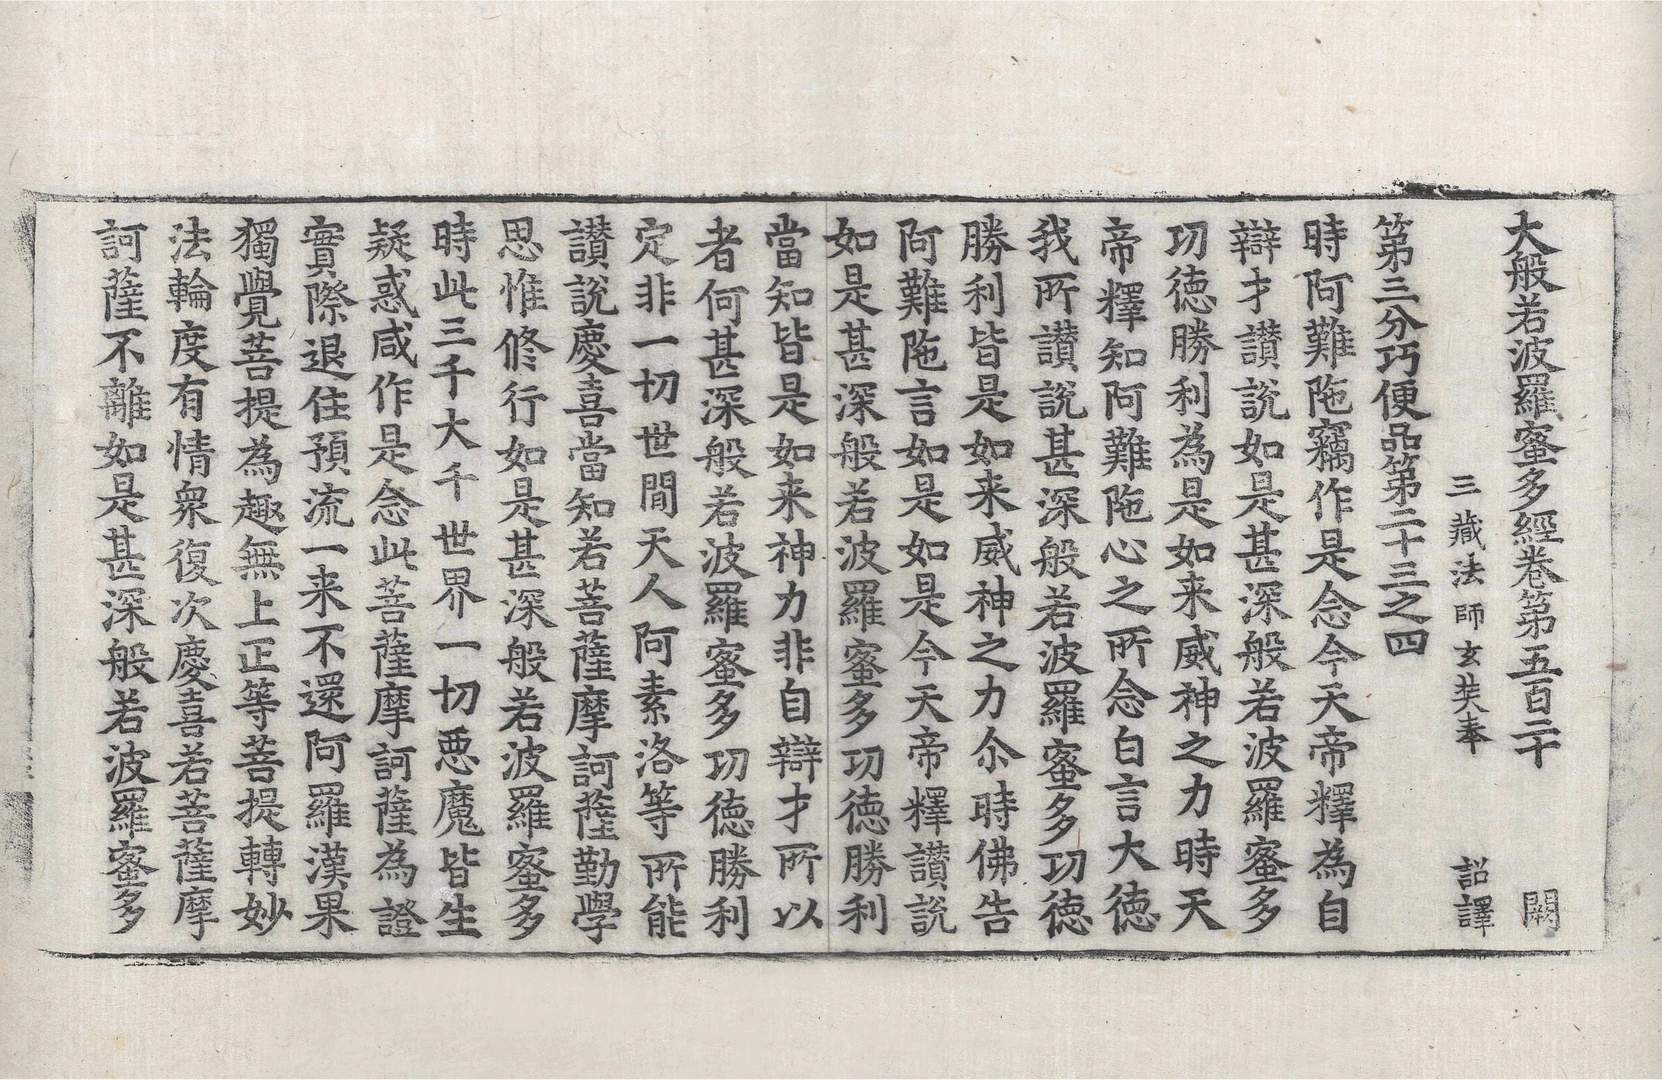 大般若波羅蜜多經卷第五百二十 闕
三藏法師玄奘奉 詔譯
第三分巧便品第二十三之四
時阿難陁竊作是念今天帝釋為自
辯才讃說如是甚深般若波羅蜜多
功德勝利為是如来威神之力時天
帝釋知阿難陁心之所念白言大德
我所讃說甚深般若波羅蜜多功德
勝利皆是如来威神之力尒時佛告
阿難陁言如是如是今天帝釋讃說
如是甚深般若波羅蜜多功德勝利
當知皆是如来神力非自辯才所以
者何甚深般若波羅蜜多功德勝利
定非一切世間天人阿素洛等所能
讃說慶喜當知若菩薩摩訶薩勤學
思惟修行如是甚深般若波羅蜜多
時此三千大千世界一切惡魔皆生
疑惑咸作是念此菩薩摩訶薩為證
實際退住預流一来不還阿羅漢果
獨覺菩提為趣無上正等菩提轉妙
法輪度有情衆復次慶喜若菩薩摩
訶薩不離如是甚深般若波羅蜜多